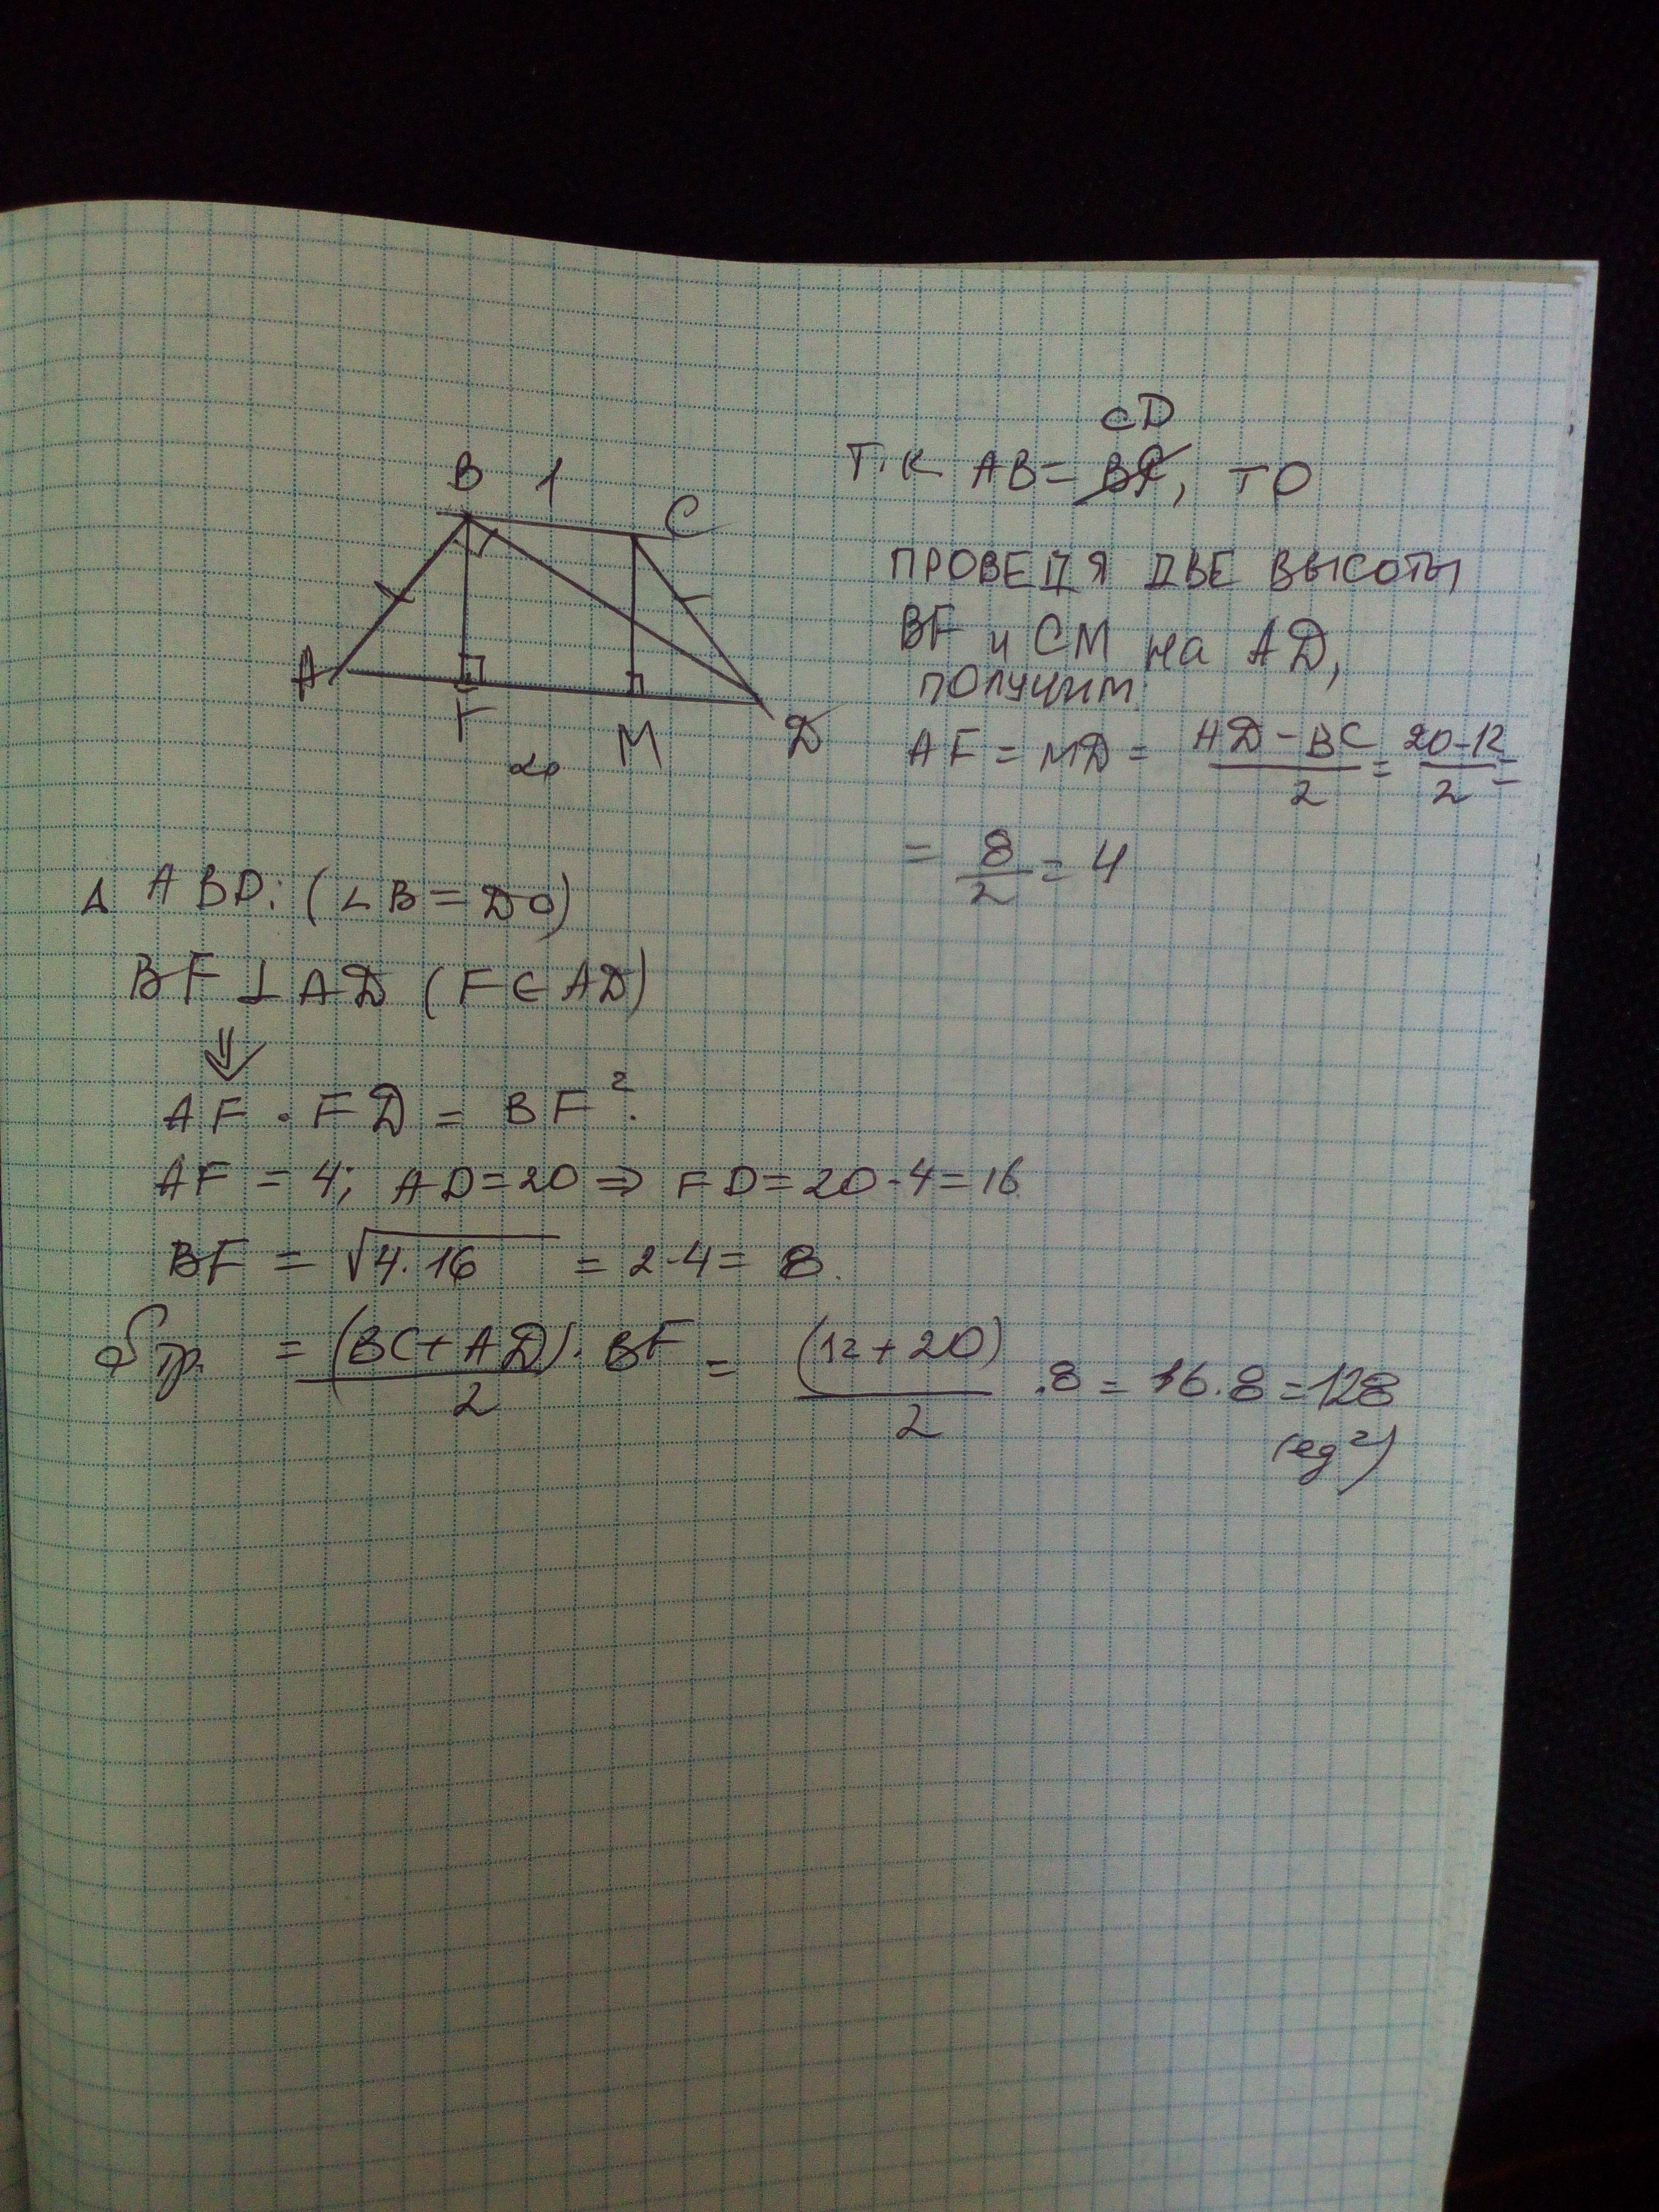 B 1
C
A
F
M
D
20
CD
Т.к AB = BF, ТО
ПРОВЕДЯ ДВЕ ВЫСОТЫ
BF и CM на AD,
получим:
AF = MD = AD - BC / 2 = 20-12 / 2 =
= 8/2 = 4
Δ ABD: (∠B = 90)
BF ⊥ AD (F ∈ AD)
⇓
AF · FD = BF².
AF = 4; AD = 20 ⇒ FD = 20 - 4 = 16
BF = √4·16 = 2·4 = 8.
Sтр. = (BC + AD) / 2 · BF = (12 + 20) / 2 · 8 = 16·8 = 128
(ед²)